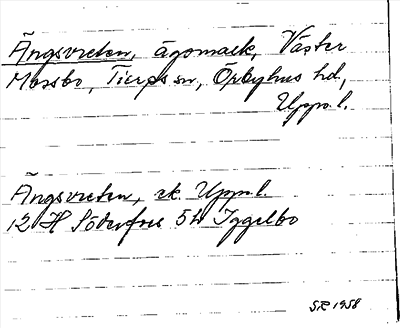 Ängsvreten, ägomark, Väster
Mossbo, Tierps sn, Örbyhus hd,
Upps.l.
Ängsvreten, ek. Upps.l.
12 H Söderfors 5h Iggelbo
SR 1958